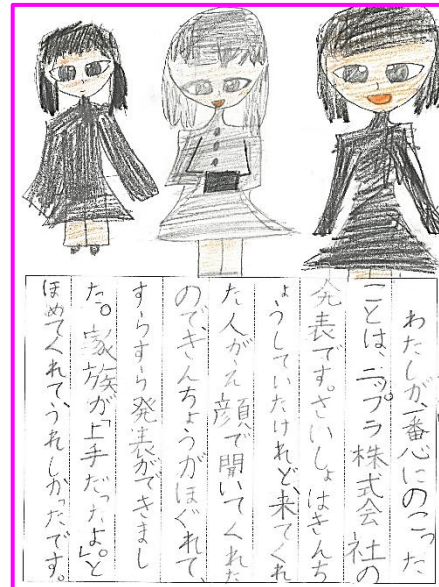 わたしが、一番心にのこった
ことは、ニップラ株式会社の
発表です。さいしょはきんち
ょうしていたけれど、来てくれ
た人がえ顔で聞いてくれた
ので、きんちょうがほぐれて、
すらすら発表ができまし
た。家族が「上手だったよ。」と
ほめてくれて、うれしかったです。